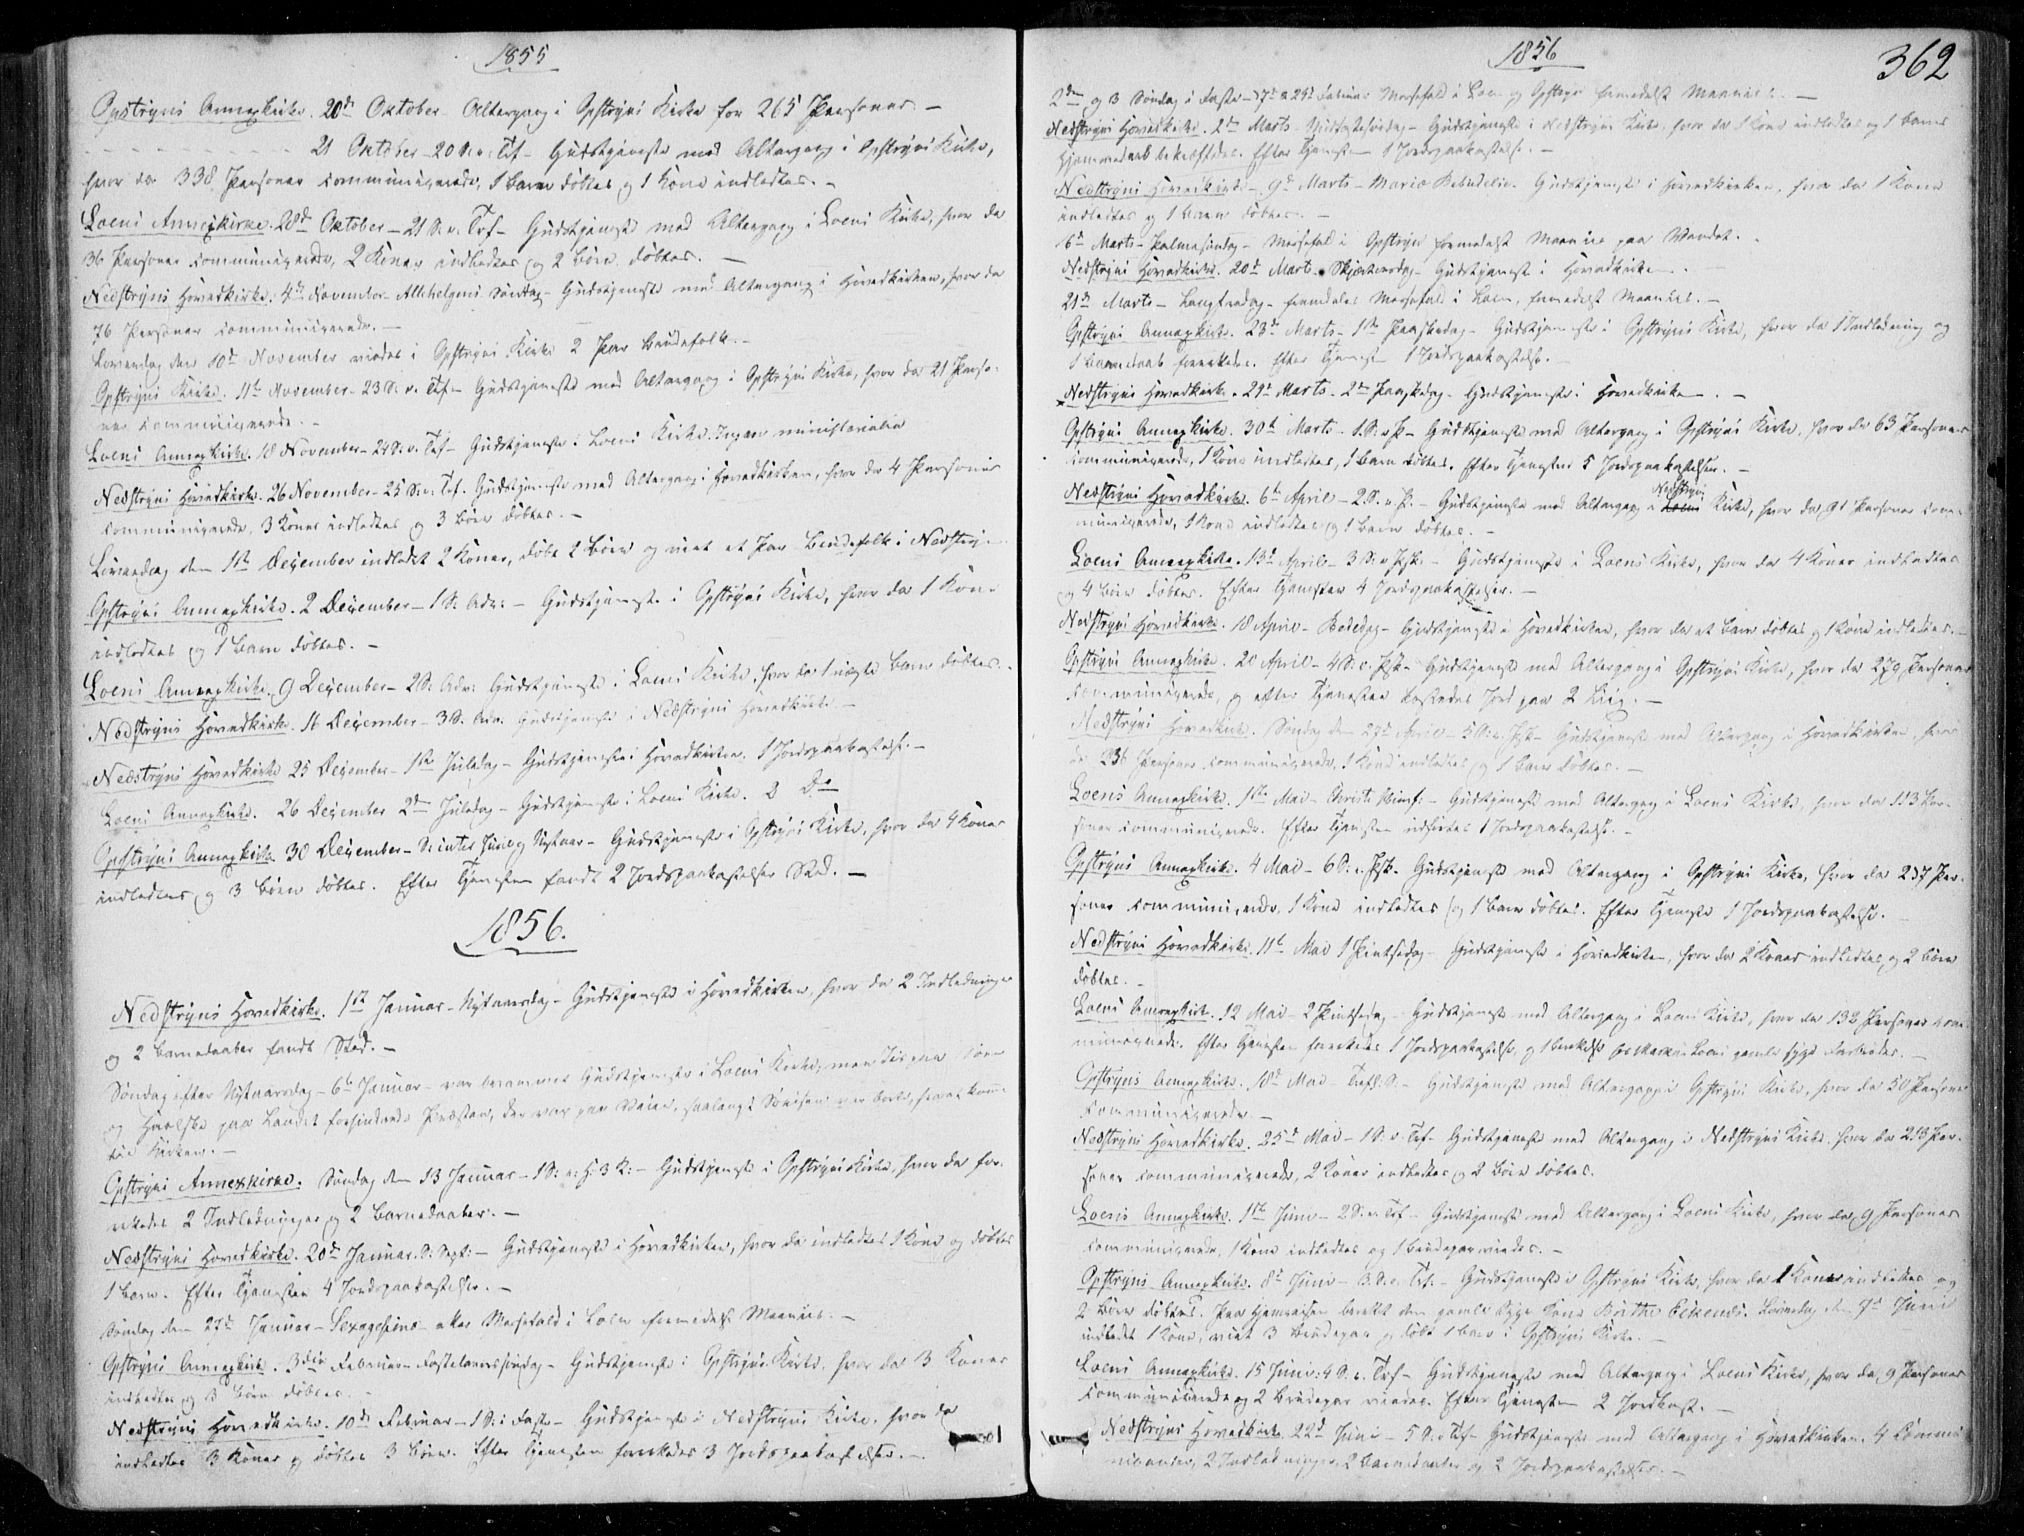 1855
Opstryns Annexkirke. 20de Oktober Altergang i Opstryns Kirke for 265 Personer. –
21 Oktober – 20 S. e. Tref. – Gudstjeneste med Altergang i Opstryns Kirke,
hvor der 338 Personer communicerede, 1 Barn døbtes og 1 Kone indledtes. –
Loens Annexkirke. 28de Oktober – 21 S. e. Tref – Gudstjeneste med Altergang i Loens Kirke, hvor der
36 Personer communicerede, 2 Koner indledtes og 2 Børn døbtes. –
Nedstryns Hovedkirke. 4de November – Allehelgens Søndag – Gudstjeneste med Altergang i Hovedkirken, hvor der
76 Personer communicerede. –
Løverdag den 10de November viedes i Opstryns Kirke 2 Par Brudefolk. –
Opstryns Kirke. 11te November – 23 S. e. Tref – Gudstjeneste med Altergang i Opstryns Kirke, hvor der 21 Perso-
ner communicerede. –
Loens Annexkirke. 18 November – 24 S. e. Tref – Gudstjeneste i Loens Kirke. Ingen ministerialia
Nedstryns Hovedkirke. 26 November – 25 S. e. Tref. Gudstjeneste med Altergang i Hovedkirken, hvor der 4 Personer
communicerede, 3 Koner indledtes og 3 Børn døbtes. –
Løverdag den 1ste December indledet 2 Koner, døbt 2 Børn og viet et Par Brudefolk i Nedstryn.
Opstryns Annexkirke. 2 December – 1 S. Adv: – Gudstjeneste i Opstryns Kirke, hvor der 1 Kone
indledtes og 1 Barn døbtes. –
Loens Annexkirke. 9 December – 2 S. Adv: Gudstjeneste i Loens Kirke, hvor der 1 uægte Barn døbtes. –
Nedstryns Hovedkirke. 16 December – 3 S. Adv. Gudstjeneste i Nedstryns Hovedkirke. –
Nedstryns Hovedkirke 25 December – 1ste Juledag – Gudstjeneste i Hovedkirken. 1 Jordspaakastelse. –
Loens Annexkirke. 26 December 2den Juledag – Gudstjeneste i Loens Kirke. 2 Do
Opstryns Annexkirke 30 December – S. inter Jul og Nytaar – Gudstjeneste i Opstryns Kirke, hvor der 4 Koner
indledtes, og 3 Børn døbtes. Efter Tjenesten fandt 2 Jordspaakastelser Sted. –
1856.
Nedstryns Hovedkirke. 1ste Januar – Nytaarsdag – Gudstjeneste i Hovedkirken, hvor der 2 Indledninger
og 2 Barnedaaber fandt Sted. –
Søndag efter Nytaarsdag – 6te Januar – var berammet Gudstjeneste i Loens Kirke, men
og paa Landet forhindrede Præsten, der var paa Veien,
til Kirken. –
Opstryns Annexkirke. Søndag den 13 Januar – 1 S. e. H. 3 K: – Gudstjeneste i Opstryns Kirke, hvor der for-
rettedes 2 Indledninger og 2 Barnedaaber. –
Nedstryns Hovedkirke. 20de Januar. S. Sept: – Gudstjeneste i Hovedkirken, hvor der indledtes 1 Kone og døbtes
1 Barn. Efter Tjenesten 4 Jordspaakastelser. –
Søndag den 27de Januar – Sexagesima – Messefald i Loen formedelst Mannús. –
Opstryns Annexkirke. 3die Februar – Fastelavnssøndag – Gudstjeneste i Opstryns Kirke, hvor der 3 Koner
indledtes og 3 Børn døbtes. –
Nedstryns Hovedkirke. 10de Februar – 1 S. i Faste – Gudstjeneste i Nedstryns Kirke, hvor der
indledtes 3 Koner og døbtes 3 Børn. Efter Tjenesten forrettedes 3 Jordspaakastelser. –
1856
362
2den og 3 Søndag i Faste – 17de & 24de Februar Messefald i Loen og Opstryn formedelst
Nedstryns Hovedkirke. 2den Marts – – Gudstjeneste i Nedstryns Kirke, hvor der 1 Kone indledtes og 1 Barns
Hjemmedaab bekræftedes. Efter Tjenesten 1 Jordspaakastelse. –
Nedstryns Hovedkirke – 9de Marts – Mariæ Bebudelse. Gudstjeneste i Hovedkirken, hvor der 1 Kone
indledtes og 1 Barn døbtes. –
16de Marts – Palmesøndag – Messefald i Opstryn formedelst paa Vandet. –
Nedstryns Hovedkirke. 20de Marts. Skjærtorsdag – Gudstjeneste i Hovedkirken. –
21de Marts – Langfredag – Messefald i Loen, formedelst –
Opstryns Annexkirke. 23de Marts – 1ste Paaskedag – Gudstjeneste i Opstryns Kirke, hvor der 1 Indledning og
1 Barnedaab forrettedes. Efter Tjenesten 1 Jordspaakastelse. –
Nedstryns Hovedkirke. 24de Marts – 2den Paaskedag – Gudstjeneste i Hovedkirken. –
Opstryns Annexkirke. 30te Marts – 1. S. e. P. – Gudstjeneste med Altergang i Opstryns Kirke, hvor der 63 Personer
communicerede, 1 Kone indledtes, 1 Barn døbtes. Efter Tjenesten 5 Jordspaakastelser. –
Nedstryns Hovedkirke. 6te April – 2 S. e. P. – Gudstjeneste med Altergang i Nedstryns Kirke, hvor der 91 Personer com-
municerede, 1 Kone indledtes og 1 Barn døbtes. –
Loens Annexkirke. 13de April – 3 S. e. Psk. – Gudstjeneste i Loens Kirke, hvor der 4 Koner indledtes
og 4 Børn døbtes. Efter Tjenesten 4 Jordspaakastelser. –
Nedstryns Hovedkirke. 18 April – Bededag – Gudstjeneste i Hovedkirken, hvor der et Barn døbtes og 1 Kone indledtes. –
Opstryns Annexkirke. 20 April – 4 S. e. Psk – Gudstjeneste med Altergang i Opstryns Kirke, hvor der 279 Personer
communicerede, og efter Tjenesten kastedes Jord paa 2 Liig. –
Nedstryns Hovedkirke. Søndag den 27de April – 5 S. e. Psk – Gudstjeneste med Altergang i Hovedkirken, hvor
der 236 Personer communicerede, 1 Kone indledtes og 1 Barn døbtes. –
Loens Annexkirke. 1ste Mai – Christi Himf: – Gudstjeneste med Altergang i Loens Kirke, hvor der 113 Per-
soner communicerede. Efter Tjenesten udførtes 1 Jordspaakastelse. –
Opstryns Annexkirke. 4 Mai – 6 S. e. Psk. Gudstjeneste med Altergang i Opstryns Kirke, hvor der 237 Per-
soner communicerede, 1 Kone indledtes og 1 Barn døbtes. Efter Tjenesten 1 Jordspaakastelse. –
Nedstryns Hovedkirke. 11te Mai 1 Pintsedag – Gudstjeneste i Hovedkirken, hvor der 2 Koner indledtes og 2 Børn
døbtes. –
Loens Annexkirke. 12 Mai – 2 Pintsedag – Gudstjeneste med Altergang i Loens Kirke, hvor der 132 Personer com-
municerede. Efter Tjenesten forrettedes 1 Jordspaakastelse, og
Opstryns Annexkirke. 18de Mai – Trefl. S. – Gudstjeneste med Altergang i Opstryns Kirke, hvor der 50 Personer
communicerede. –
Nedstryns Hovedkirke. 25de Mai – 1 S. e. Tref – Gudstjeneste med Altergang i Nedstryns Kirke, hvor der 213 Per-
soner communicerede, 2 Koner indledtes og 2 Børn døbtes.
Loens Annexkirke. 1ste Juni – 2 S. e. Tref – Gudstjeneste med Altergang i Loens Kirke, hvor der 9 Personer
communicerede, 1 Kone indledtes og 1 Brudepar viedes. –
Opstryns Annexkirke. 8de Juni – 3. S. e. Tref: – Gudstjeneste i Opstryns Kirke, hvor der 1 Kone indledtes og
2 Børn døbtes. Paa Hjemreisen berettet den gamle syge Kone Birthe Løverdag den 7de Juni
indledt 1 Kone, viet 3 Brudepar og døbt 1 Barn i Opstryns Kirke. –
Loens Annexkirke. 15 Juni – 4 S. e. Tref – Gudstjeneste med Altergang i Loens Kirke, hvor der 9 Personer
communicerede og 2 Brudepar viedes. Efter Tjenesten 2 Jordkast. –
Nedstryns Hovedkirke. 22de Juni – 5 S. e. Tref – Gudstjeneste med Altergang i Hovedkirken. 4 Commu-
nicanter, 2 Indledninger, 2 Barnedaaber og 2 Jordspaakastelser. –